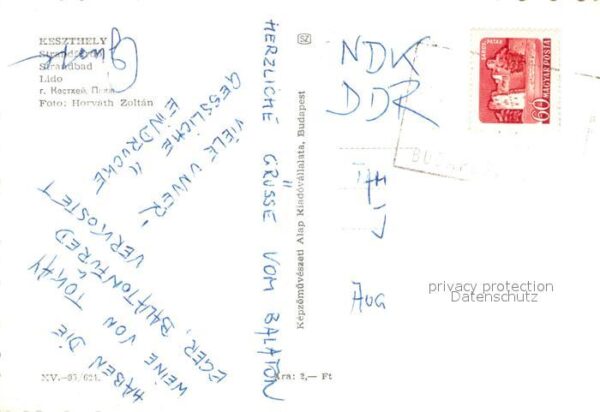 KESZTHELY
Strandfürdő
Strandbad
Lido
г. Кестхей, Пляж
Foto: Horváth Zoltán
HERZLICHE GRÜSSE VOM BALATON
VIELE UNVER
GESSLICHE
EINDRÜCKE
HABEN DIE
WEINE VON TOKAY
EGER, BALATONFÜRED
VERKOSTET
XV.—67/621.
Ára: 2,— Ft
Képzőművészeti Alap Kiadóvállalata, Budapest
NDK
DDR
AUG
SÁROSPATAK
MAGYAR POSTA
60
BUDAPEST
privacy protection
Datenschutz